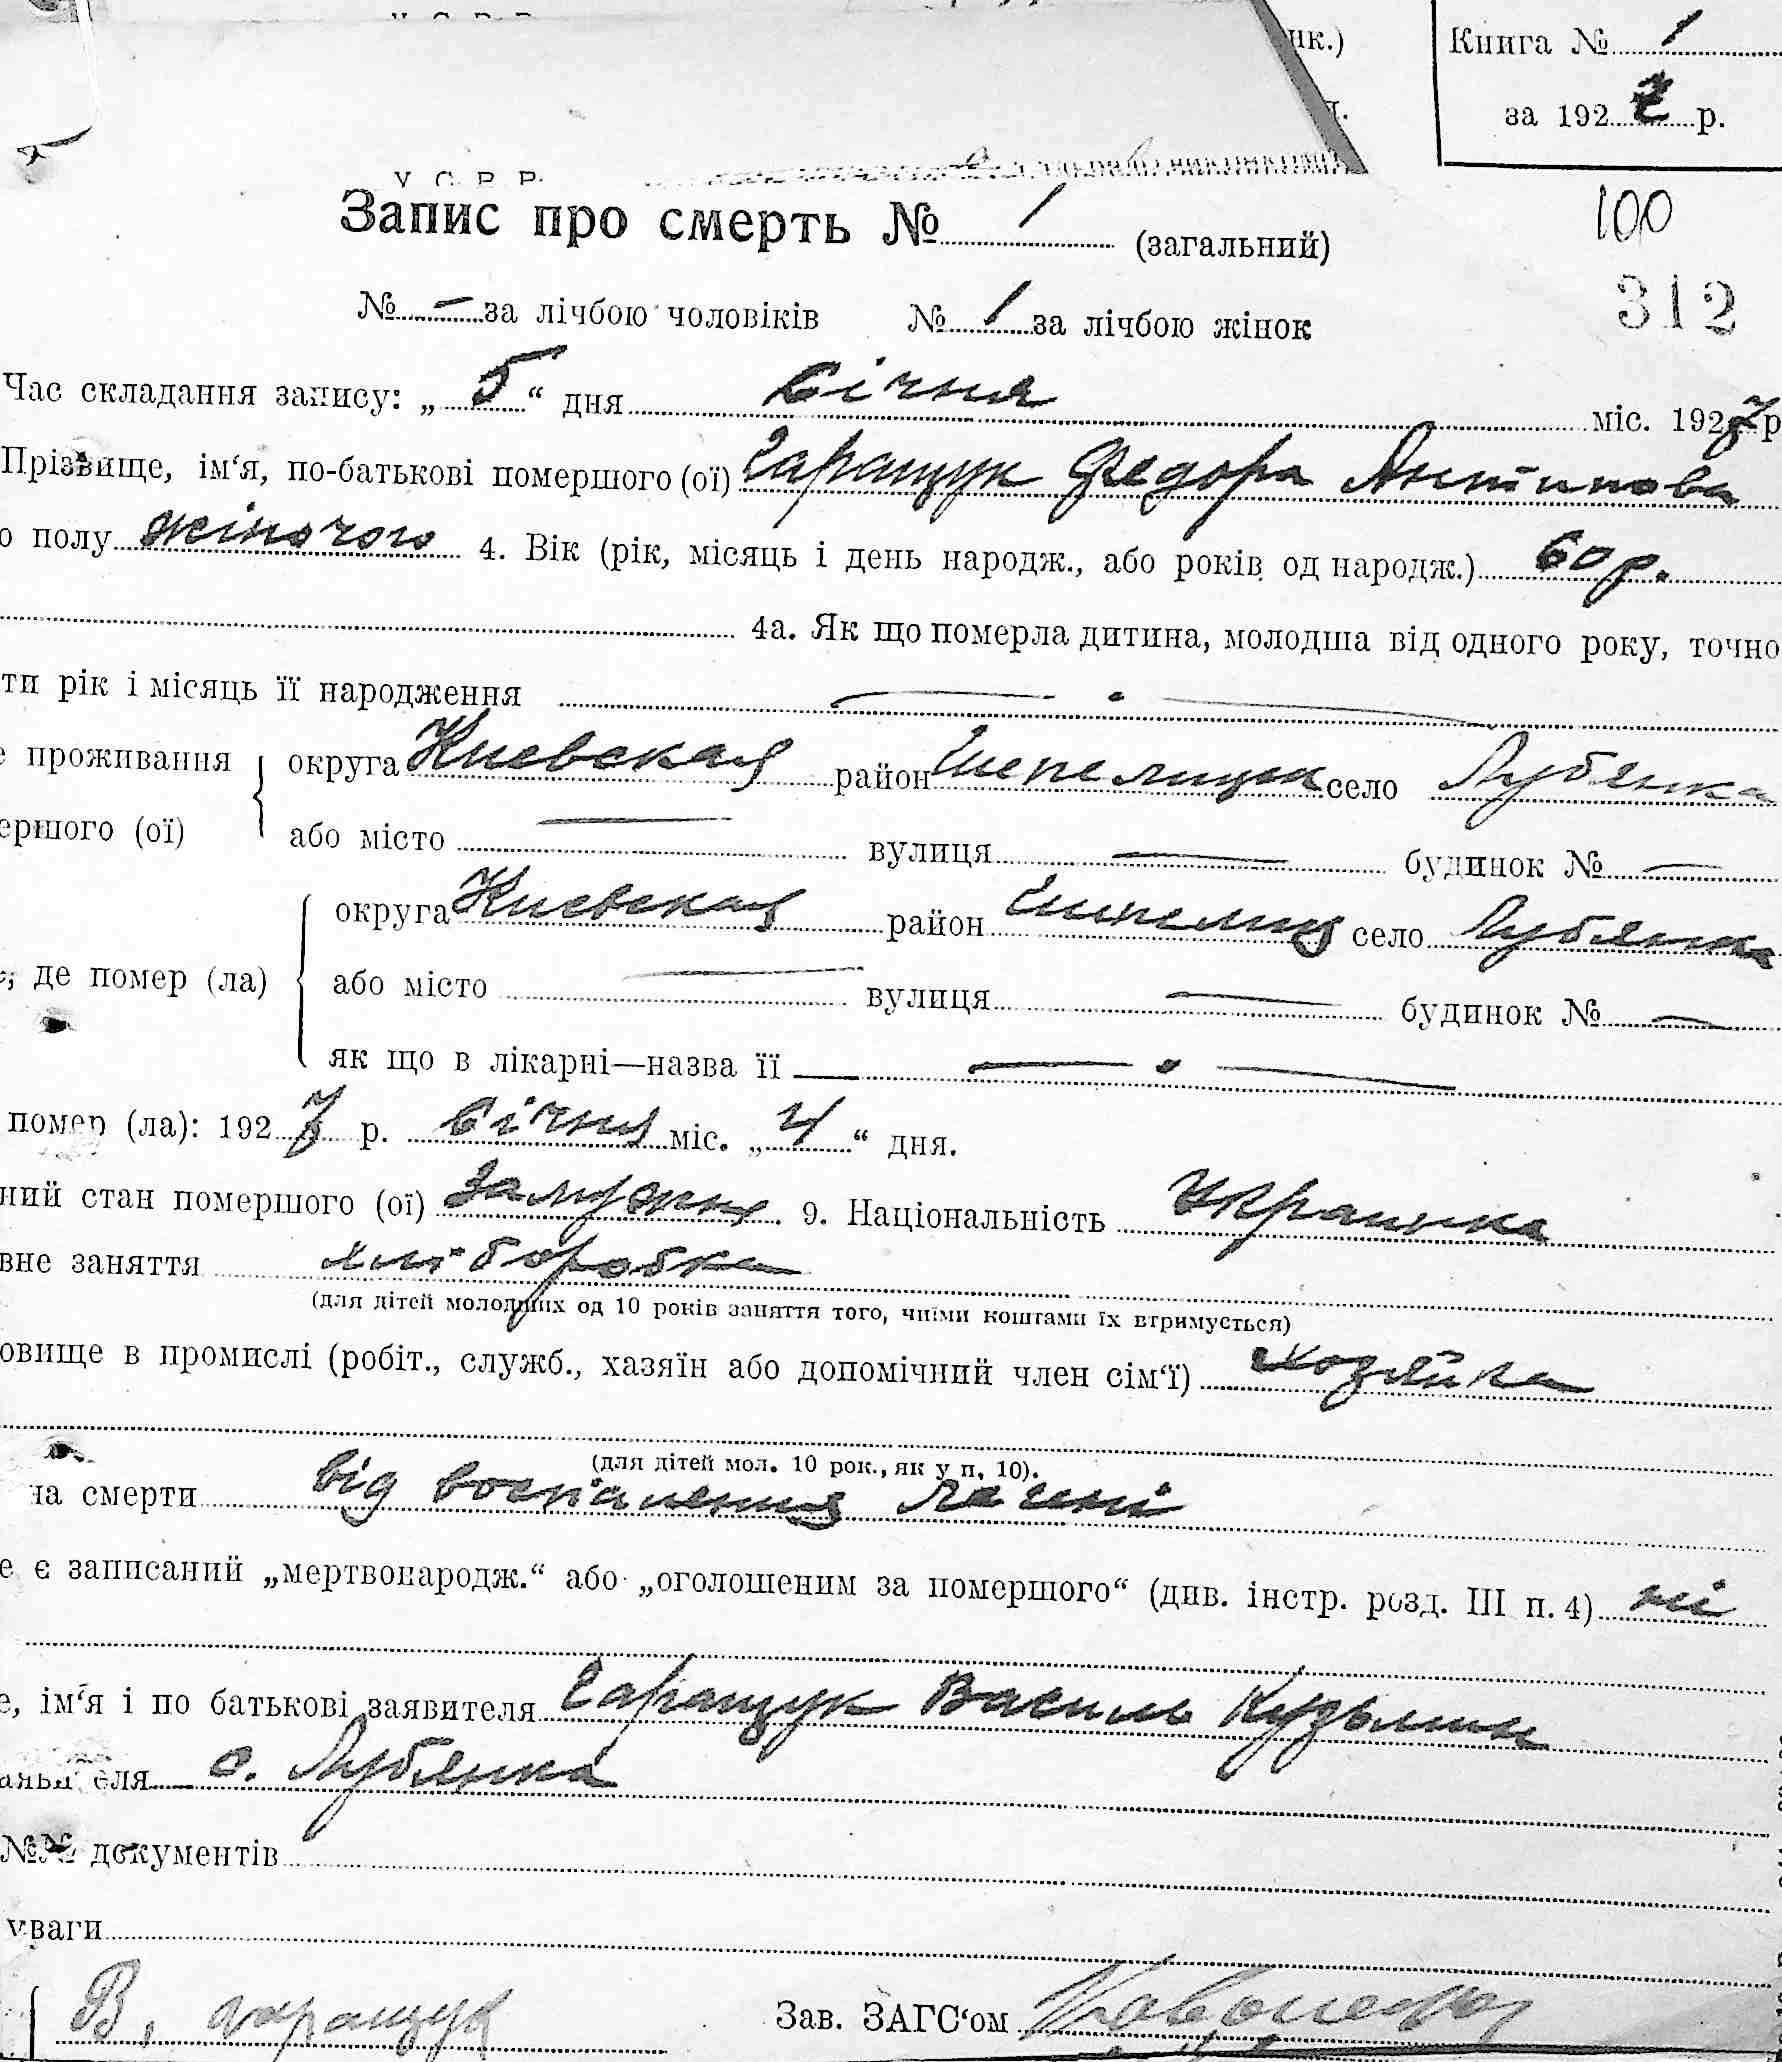 Книга № 1
за 1927 р.
У С Р Р
Запис про смерть № 1 (загальний)
100
312
№ — за лічбою чоловіків № 1 за лічбою жінок
Час складання запису: „ 5 “ дня Січня міс. 1927 р
Прізвище, ім‘я, по-батькові помершого (ої) Гаращук Федора Антипова
о полу жіночого 4. Вік (рік, місяць і день народж., або років од народж.) 60 р.
4а. Як що померла дитина, молодша від одного року, точно
ти рік і місяць її народження —
е проживання округа Киевская район Шепелицк село Лубянка
ершого (ої) або місто — вулиця — будинок № —
округа Киевская район село Лубянка
, де помер (ла) або місто — вулиця — будинок № —
як що в лікарні—назва її —
помер (ла): 1927 р. Січня міс. „ 4 “ дня.
ний стан помершого (ої) Замужня 9. Національність Украинка
вне заняття хліборобка
(для дітей молодших од 10 років заняття того, чиїми коштами їх втримується)
овище в промислі (робіт., служб., хазяїн або допомічний член сім‘ї) хозяйка
(для дітей мол. 10 рок., як у п. 10).
на смерти від воспаления
е є записаний „мертвонародж.“ або „оголошеним за помершого“ (див. інстр. розд. III п. 4) ні
е, ім‘я і по батькові заявителя Гаращук Василь Кузьмин
аявителя с. Лубянка
№№ документів
уваги
В. Гаращук Зав. ЗАГС‘ом